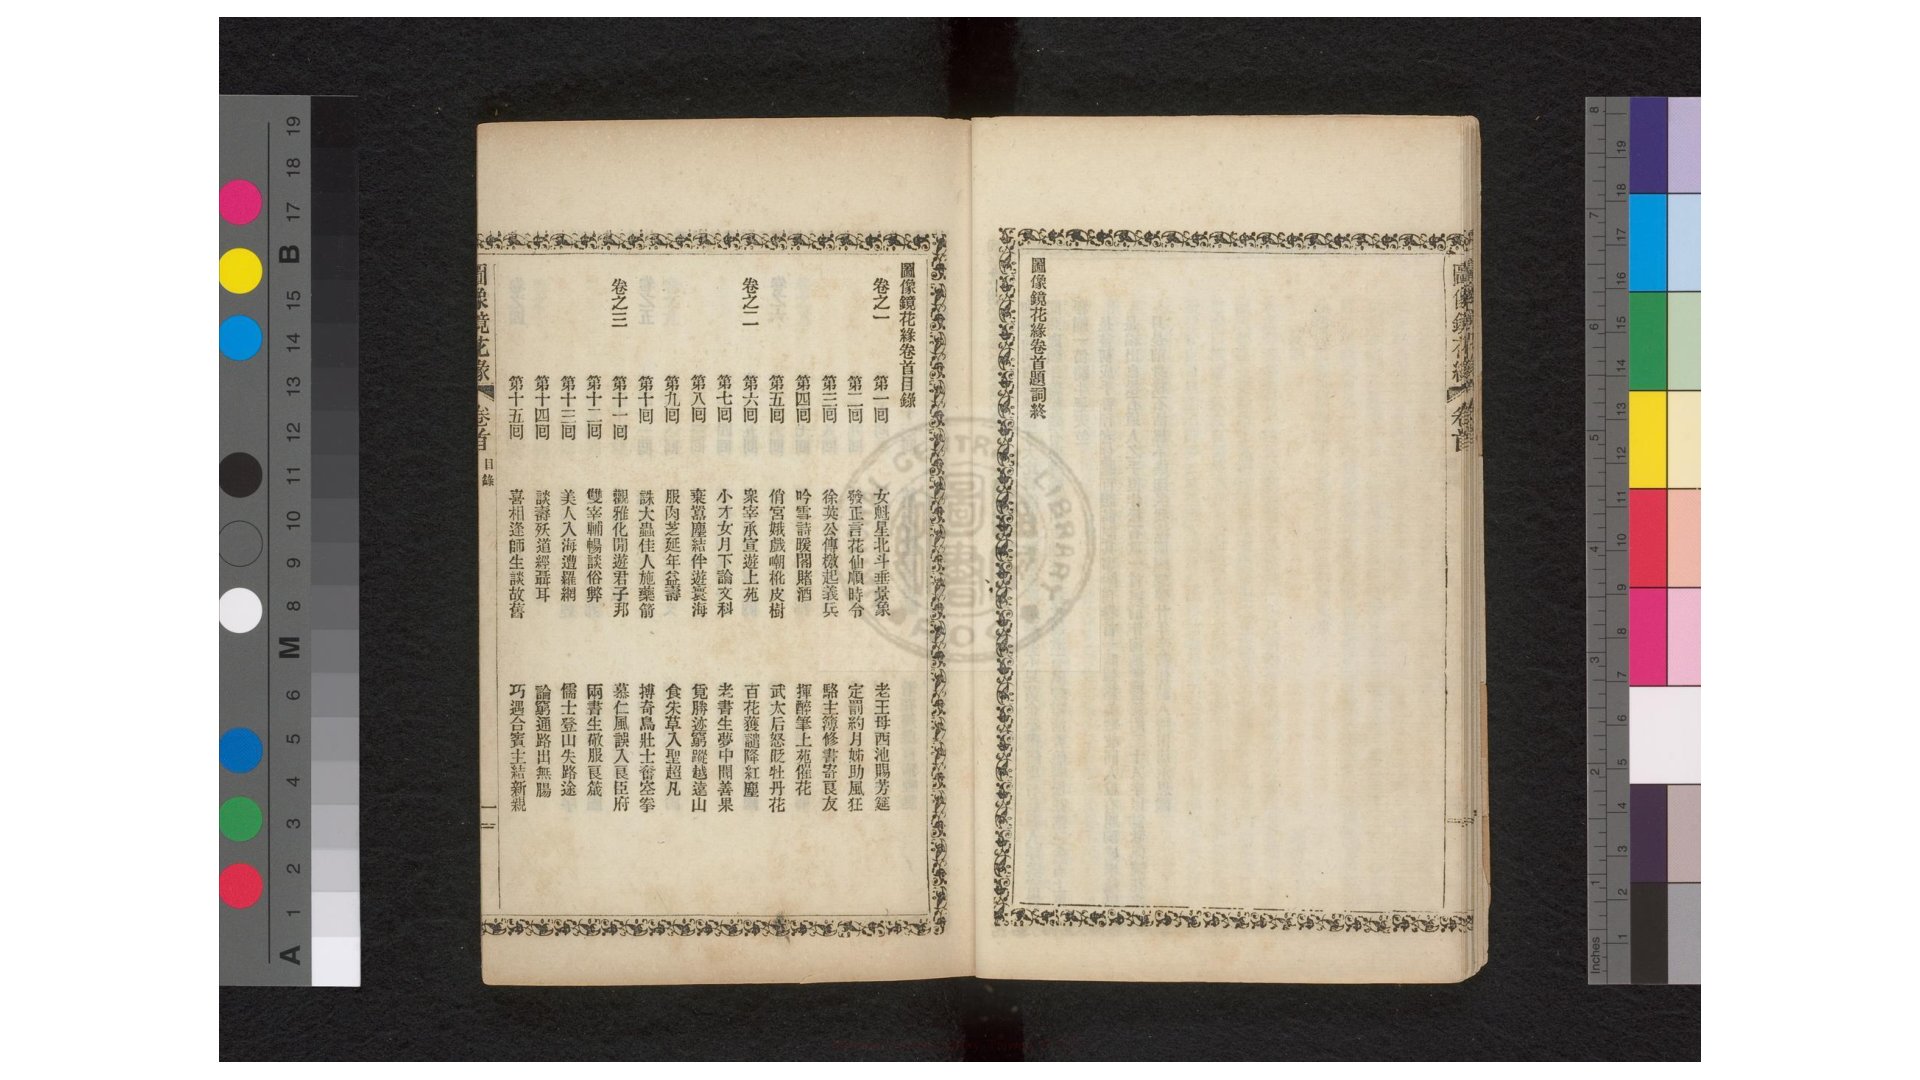 圖像鏡花緣
卷首
圖像鏡花緣卷首題詞終
圖像鏡花緣卷首目錄
卷之一 第一回 女魁星北斗垂景象 老王母西池賜芳筵
第二回 發正言花仙順時令 定罰約月姊助風狂
第三回 徐英公傳檄起義兵 駱主簿修書寄良友
第四回 吟雪詩暖閣賭酒 揮醉筆上苑催花
第五回 俏宮娥戲嘲枇皮樹 武太后怒貶牡丹花
卷之二 第六回 衆宰承宣遊上苑 百花獲譴降紅塵
第七回 小才女月下論文科 老書生夢中聞善果
第八回 棄囂塵結伴遊寰海 覓勝迹窮蹤越遠山
第九回 服肉芝延年益壽 食朱草入聖超凡
第十回 誅大蟲佳人施藥箭 搏奇鳥壯士奮空拳
卷之三 第十一回 觀雅化閒遊君子邦 慕仁風誤入良臣府
第十二回 雙宰輔暢談俗弊 兩書生敬服良箴
第十三回 美人入海遭羅網 儒士登山失路途
第十四回 談壽殀道經聶耳 論窮通路出無腸
第十五回 喜相逢師生談故舊 巧遇合賓主結新親
圖像鏡花緣
卷首 目錄
一
NATIONAL CENTRAL LIBRARY
R.O.C.
A 1 2 3 4 5 6 M 8 9 10 11 12 13 14 15 B 17 18 19
Inches 1 2 3 4 5 6 7 8
1 2 3 4 5 6 7 8 9 10 11 12 13 14 15 16 17 18 19